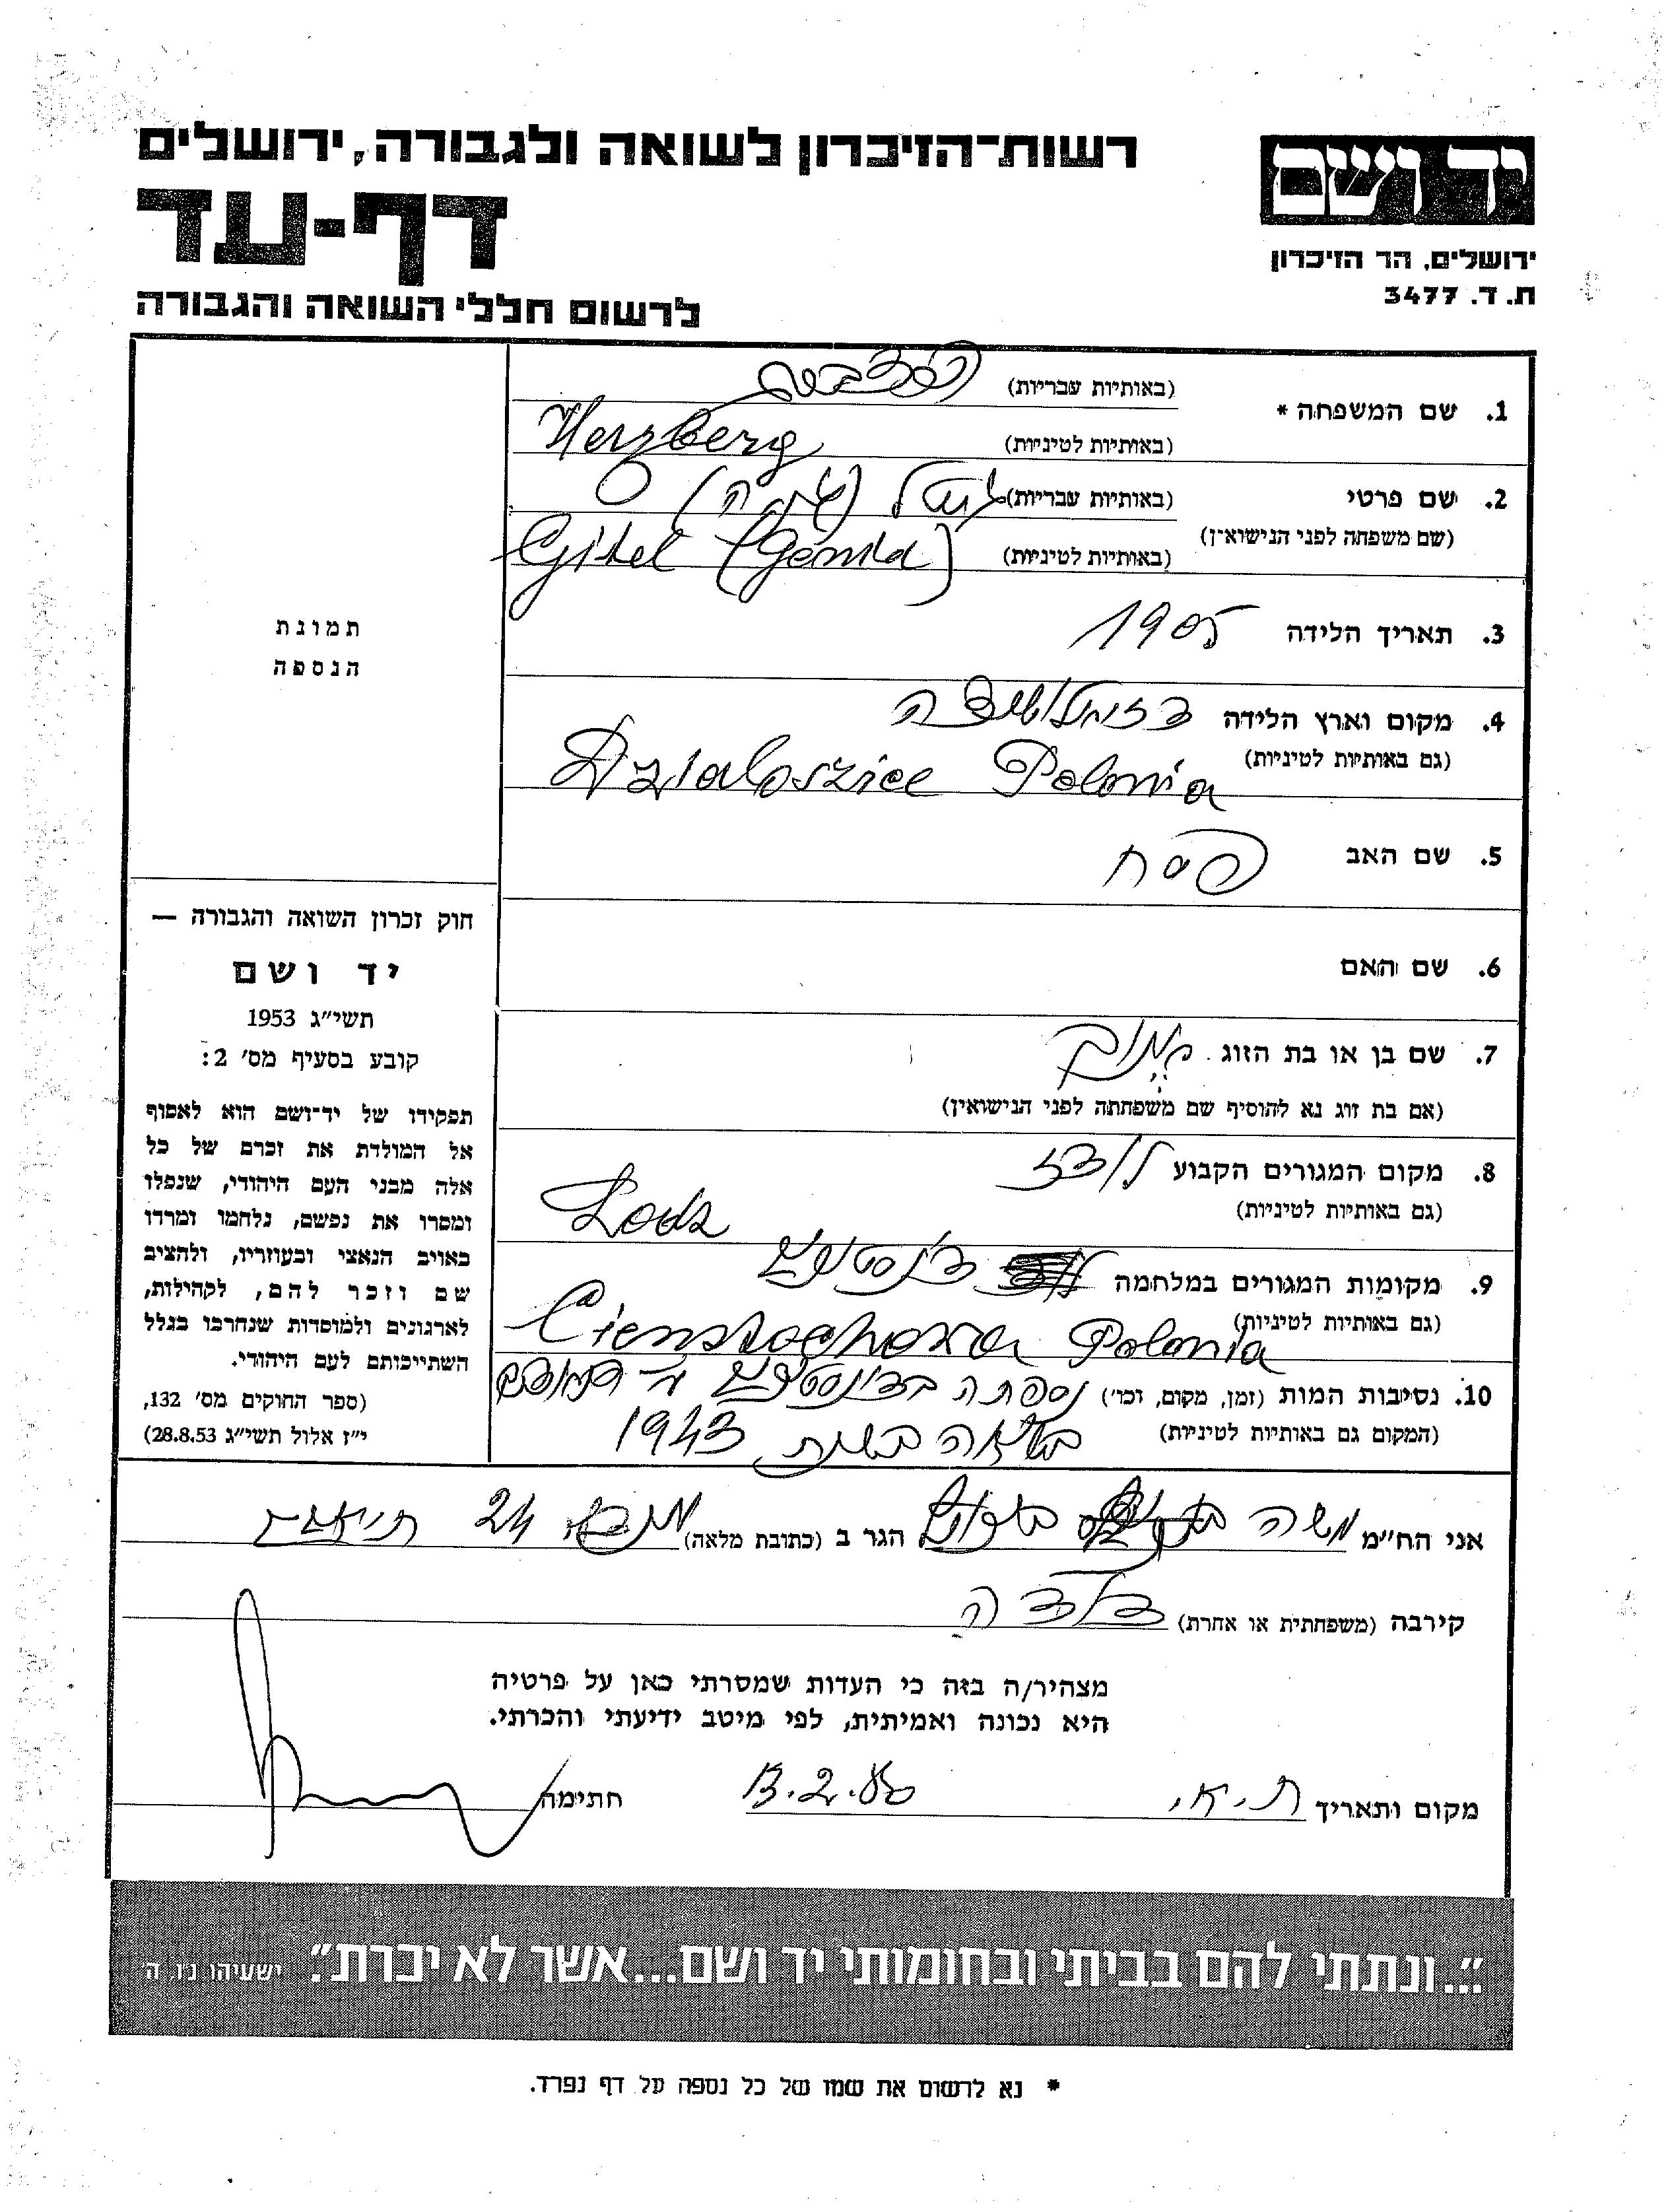 רשות־הזיכרון לשואה ולגבורה, ירושלים
יד ושם
דף-עד
ירושלים, הר הזיכרון
ת. ד. 3477
לרשום חללי השואה והגבורה
1. שם המשפחה * (באותיות עבריות) הרצברג
(באותיות לטיניות) Herzberg
2. שם פרטי (באותיות עבריות) גיטל
(שם משפחה לפני הנישואין)
(באותיות לטיניות) Gitel (Genia)
3. תאריך הלידה 1905
4. מקום וארץ הלידה
(גם באותיות לטיניות) Dzialoszice Polonia
5. שם האב פסח
6. שם האם
7. שם בן או בת הזוג
(אם בת זוג נא להוסיף שם משפחתה לפני הנישואין)
8. מקום המגורים הקבוע לודז
(גם באותיות לטיניות) Lodz
9. מקומות המגורים במלחמה
(גם באותיות לטיניות) Cienstochowa Polonia
10. נסיבות המות (זמן, מקום, וכו') נספתה
(המקום גם באותיות לטיניות) בשואה בשנת 1943
תמונת
הנספה
חוק זכרון השואה והגבורה —
יד ושם
תשי"ג 1953
קובע בסעיף מס' 2:
תפקידו של יד־ושם הוא לאסוף
אל המולדת את זכרם של כל
אלה מבני העם היהודי, שנפלו
ומסרו את נפשם, נלחמו ומרדו
באויב הנאצי ובעוזריו, ולהציב
שם וזכר להם, לקהילות,
לארגונים ולמוסדות שנחרבו בגלל
השתייכותם לעם היהודי.
(ספר החוקים מס' 132,
י"ז אלול תשי"ג 28.8.53)
אני הח"מ משה הגר ב (כתובת מלאה) 24
קירבה (משפחתית או אחרת) דודה
מצהיר/ה בזה כי העדות שמסרתי כאן על פרטיה
היא נכונה ואמיתית, לפי מיטב ידיעתי והכרתי.
מקום ותאריך ת.א. 13.2.80 חתימה
"...ונתתי להם בביתי ובחומותי יד ושם...אשר לא יכרת". ישעיהו נ"ו, ה'
* נא לרשום את שמו של כל נספה על דף נפרד.